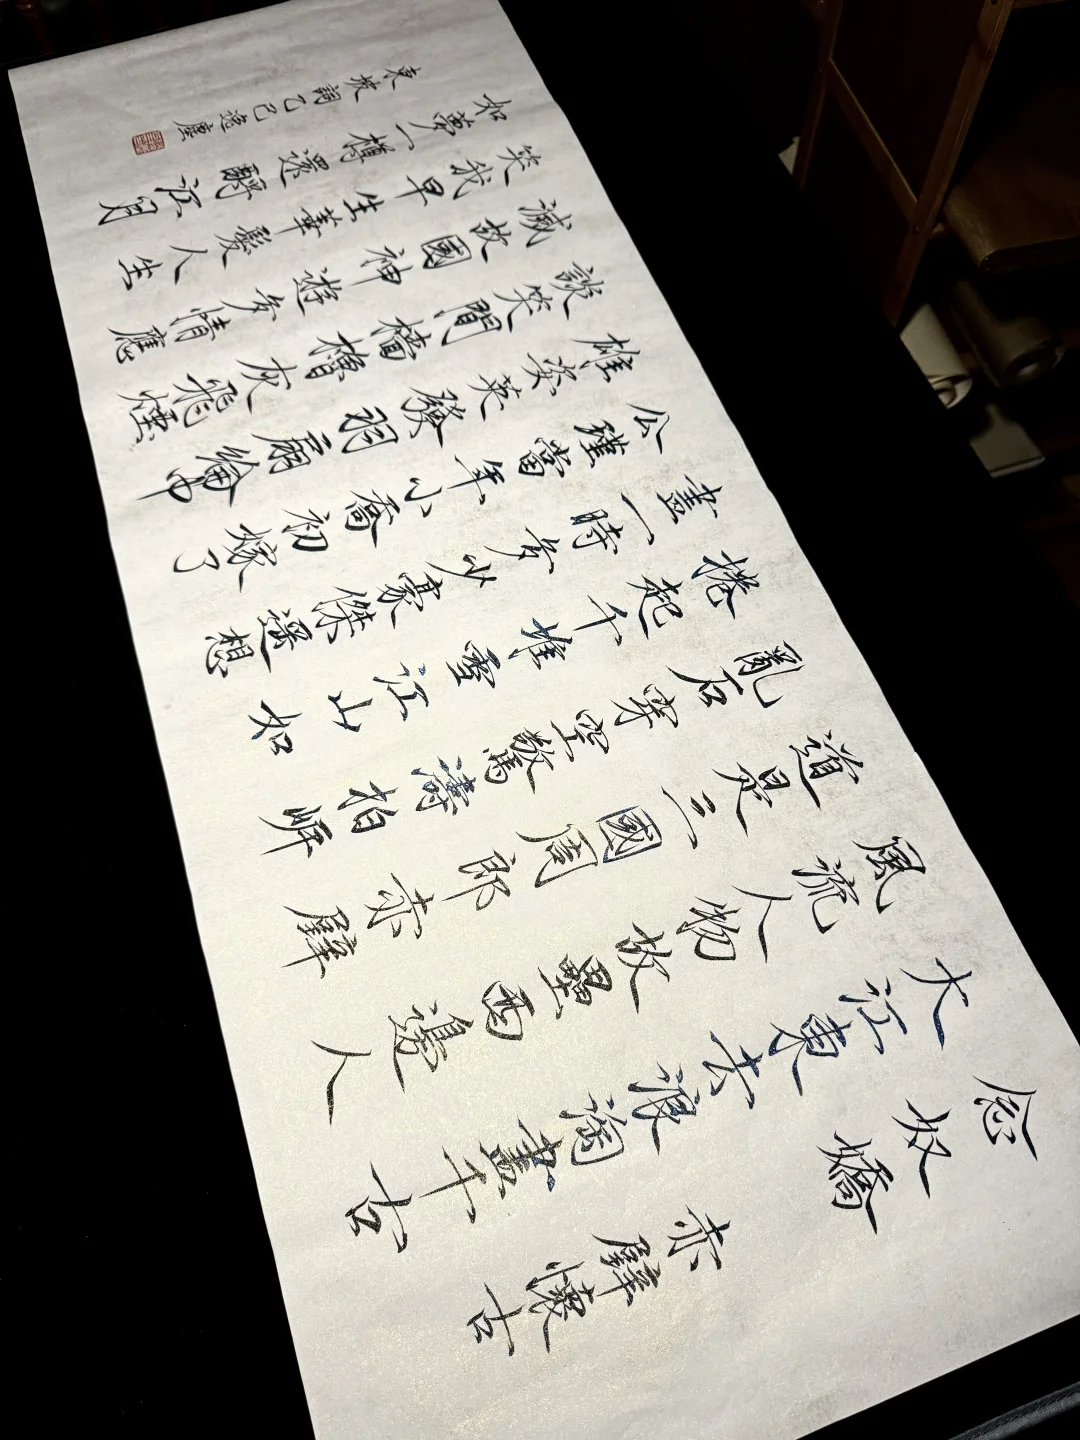 念奴嬌 赤壁懷古
大江東去浪淘盡千古
風流人物故壘西邊人
道是三國周郎赤壁
亂石穿空驚濤拍岸
捲起千堆雪江山如
畫一時多少豪傑遙想
公瑾當年小喬初嫁了
雄姿英發羽扇綸巾
談笑間檣櫓灰飛煙
滅故國神遊多情應
笑我早生華髮人生
如夢一樽還酹江月
東坡詞乙巳逸塵